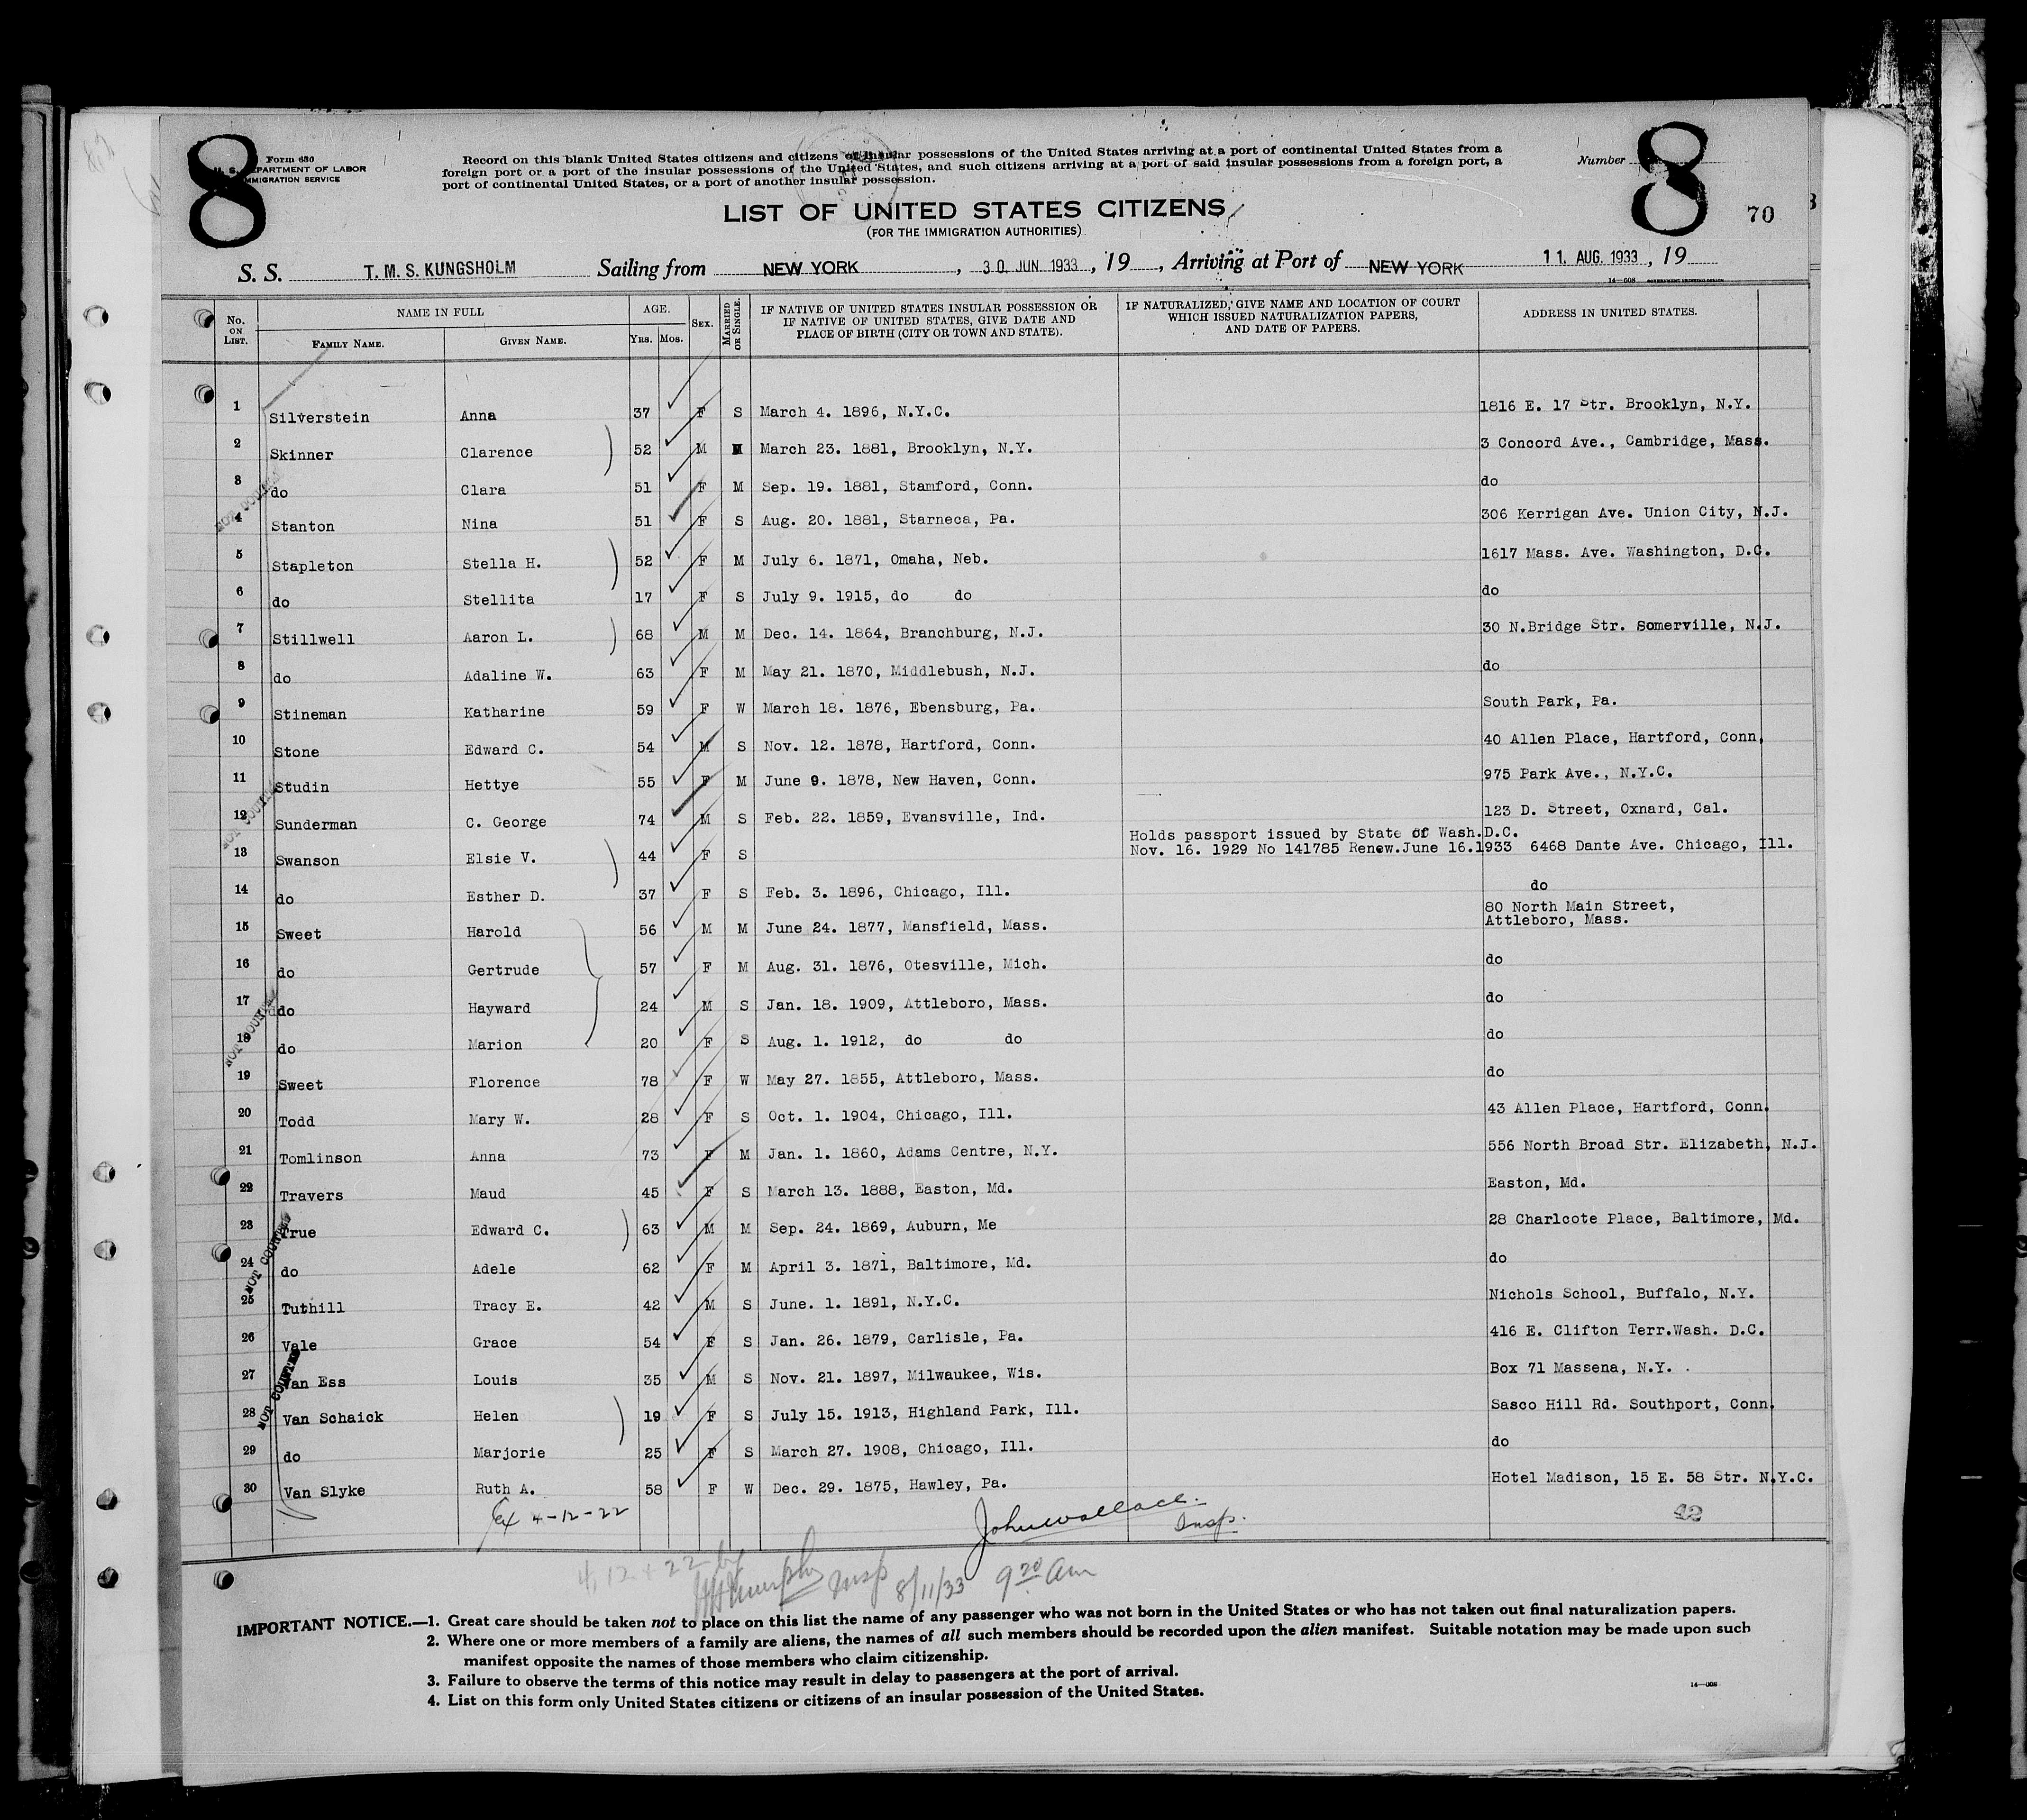 8
8
Form 630
U. S. DEPARTMENT OF LABOR
IMMIGRATION SERVICE
Record on this blank United States citizens and citizens of insular possessions of the United States arriving at a port of continental United States from a
foreign port or a port of the insular possessions of the United States, and such citizens arriving at a port of said insular possessions from a foreign port, a
port of continental United States, or a port of another insular possession.
Number
70
LIST OF UNITED STATES CITIZENS
(FOR THE IMMIGRATION AUTHORITIES)
S. S. T. M. S. KUNGSHOLM Sailing from NEW YORK, 30 JUN 1933, 19 , Arriving at Port of NEW YORK 11. AUG. 1933, 19
14-608 GOVERNMENT PRINTING OFFICE
No. ON LIST. NAME IN FULL FAMILY NAME. GIVEN NAME. AGE. YRS. MOS. SEX. MARRIED OR SINGLE. IF NATIVE OF UNITED STATES INSULAR POSSESSION OR IF NATIVE OF UNITED STATES, GIVE DATE AND PLACE OF BIRTH (CITY OR TOWN AND STATE). IF NATURALIZED, GIVE NAME AND LOCATION OF COURT WHICH ISSUED NATURALIZATION PAPERS, AND DATE OF PAPERS. ADDRESS IN UNITED STATES.
1 Silverstein Anna 37 F S March 4. 1896, N.Y.C. 1816 E. 17 Str. Brooklyn, N.Y.
2 Skinner Clarence 52 M M March 23. 1881, Brooklyn, N.Y. 3 Concord Ave., Cambridge, Mass.
3 do Clara 51 F M Sep. 19. 1881, Stamford, Conn. do
4 Stanton Nina 51 F S Aug. 20. 1881, Starneca, Pa. 306 Kerrigan Ave. Union City, N.J.
5 Stapleton Stella H. 52 F M July 6. 1871, Omaha, Neb. 1617 Mass. Ave. Washington, D.C.
6 do Stellita 17 F S July 9. 1915, do do do
7 Stillwell Aaron L. 68 M M Dec. 14. 1864, Branchburg, N.J. 30 N.Bridge Str. Somerville, N.J.
8 do Adaline W. 63 F M May 21. 1870, Middlebush, N.J. do
9 Stineman Katharine 59 F W March 18. 1876, Ebensburg, Pa. South Park, Pa.
10 Stone Edward C. 54 M S Nov. 12. 1878, Hartford, Conn. 40 Allen Place, Hartford, Conn,
11 Studin Hettye 55 F M June 9. 1878, New Haven, Conn. 975 Park Ave., N.Y.C.
12 Sunderman C. George 74 M S Feb. 22. 1859, Evansville, Ind. 123 D. Street, Oxnard, Cal.
Holds passport issued by State of Wash.D.C.
13 Swanson Elsie V. 44 F S Nov. 16. 1929 No 141785 Renew.June 16.1933 6468 Dante Ave. Chicago, Ill.
14 do Esther D. 37 F S Feb. 3. 1896, Chicago, Ill. do
80 North Main Street,
15 Sweet Harold 56 M M June 24. 1877, Mansfield, Mass. Attleboro, Mass.
16 do Gertrude 57 F M Aug. 31. 1876, Otesville, Mich. do
17 do Hayward 24 M S Jan. 18. 1909, Attleboro, Mass. do
18 do Marion 20 F S Aug. 1. 1912, do do do
19 Sweet Florence 78 F W May 27. 1855, Attleboro, Mass. do
20 Todd Mary W. 28 F S Oct. 1. 1904, Chicago, Ill. 43 Allen Place, Hartford, Conn.
21 Tomlinson Anna 73 F M Jan. 1. 1860, Adams Centre, N.Y. 556 North Broad Str. Elizabeth, N.J.
22 Travers Maud 45 F S March 13. 1888, Easton, Md. Easton, Md.
23 True Edward C. 63 M M Sep. 24. 1869, Auburn, Me 28 Charlcote Place, Baltimore, Md.
24 do Adele 62 F M April 3. 1871, Baltimore, Md. do
25 Tuthill Tracy E. 42 M S June. 1. 1891, N.Y.C. Nichols School, Buffalo, N.Y.
26 Vale Grace 54 F S Jan. 26. 1879, Carlisle, Pa. 416 E. Clifton Terr.Wash. D.C.
27 Van Ess Louis 35 M S Nov. 21. 1897, Milwaukee, Wis. Box 71 Massena, N.Y.
28 Van Schaick Helen 19 F S July 15. 1913, Highland Park, Ill. Sasco Hill Rd. Southport, Conn.
29 do Marjorie 25 F S March 27. 1908, Chicago, Ill. do
30 Van Slyke Ruth A. 58 F W Dec. 29. 1875, Hawley, Pa. Hotel Madison, 15 E. 58 Str. N.Y.C.
NOT COUNTED
NOT COUNTED
NOT COUNTED
NOT COUNTED
NOT COUNTED
Ex 4-12-22 John Wallace. Insp.
4, 12 + 22 by Murphy Insp 8/11/33 9 20 am
IMPORTANT NOTICE.—1. Great care should be taken not to place on this list the name of any passenger who was not born in the United States or who has not taken out final naturalization papers.
2. Where one or more members of a family are aliens, the names of all such members should be recorded upon the alien manifest. Suitable notation may be made upon such
manifest opposite the names of those members who claim citizenship.
3. Failure to observe the terms of this notice may result in delay to passengers at the port of arrival.
4. List on this form only United States citizens or citizens of an insular possession of the United States.